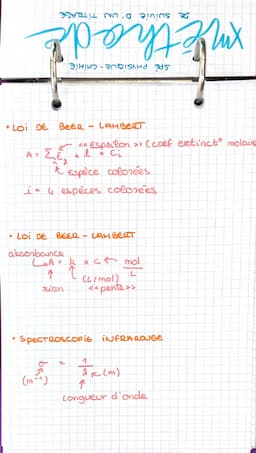 méthode
DE SUIVIE D'UN TITRAGE
SPÉ PHYSIQUE-CHIMIE
• LOI DE BEER - LAMBERT
<<Espsilon>> (coef extinct° molaire
A = Σ ε x l x Ci
espèce colorées
i = 4 espèces colorées
• LOI DE BEER - LAMBERT
absorbance
A = k x C ← mol/L
(L/mol)
rien <<pente>>
• SPECTROSCOPIE INFRAROUGE
σ = 1/λ (m)
(m⁻¹)
Longueur d'onde